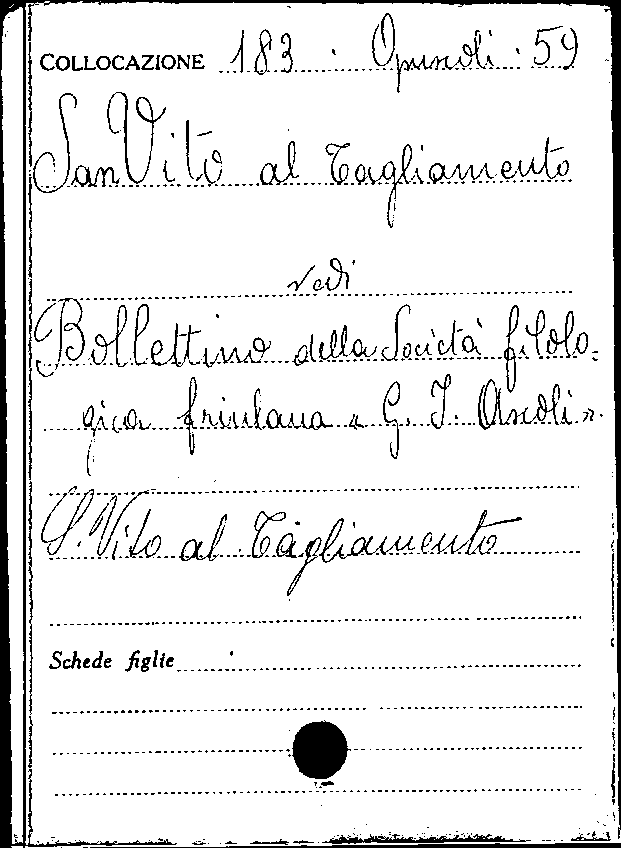 COLLOCAZIONE 183 . Opuscoli . 59
San Vito al Tagliamento
vedi
Bollettino della Società filolo=
gica friulana « G. I. Ascoli ».
S. Vito al Tagliamento
Schede figlie